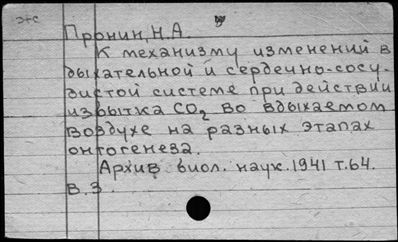 этс
Пронин, Н.А.
К механизму изменений в
дыхательной и сердечно-сосу-
дистой системе при действии
избытка CO2 во вдыхаемом
воздухе на разных этапах
онтогенеза.
Архив биол. наук. 1941 т.64.
в.3.